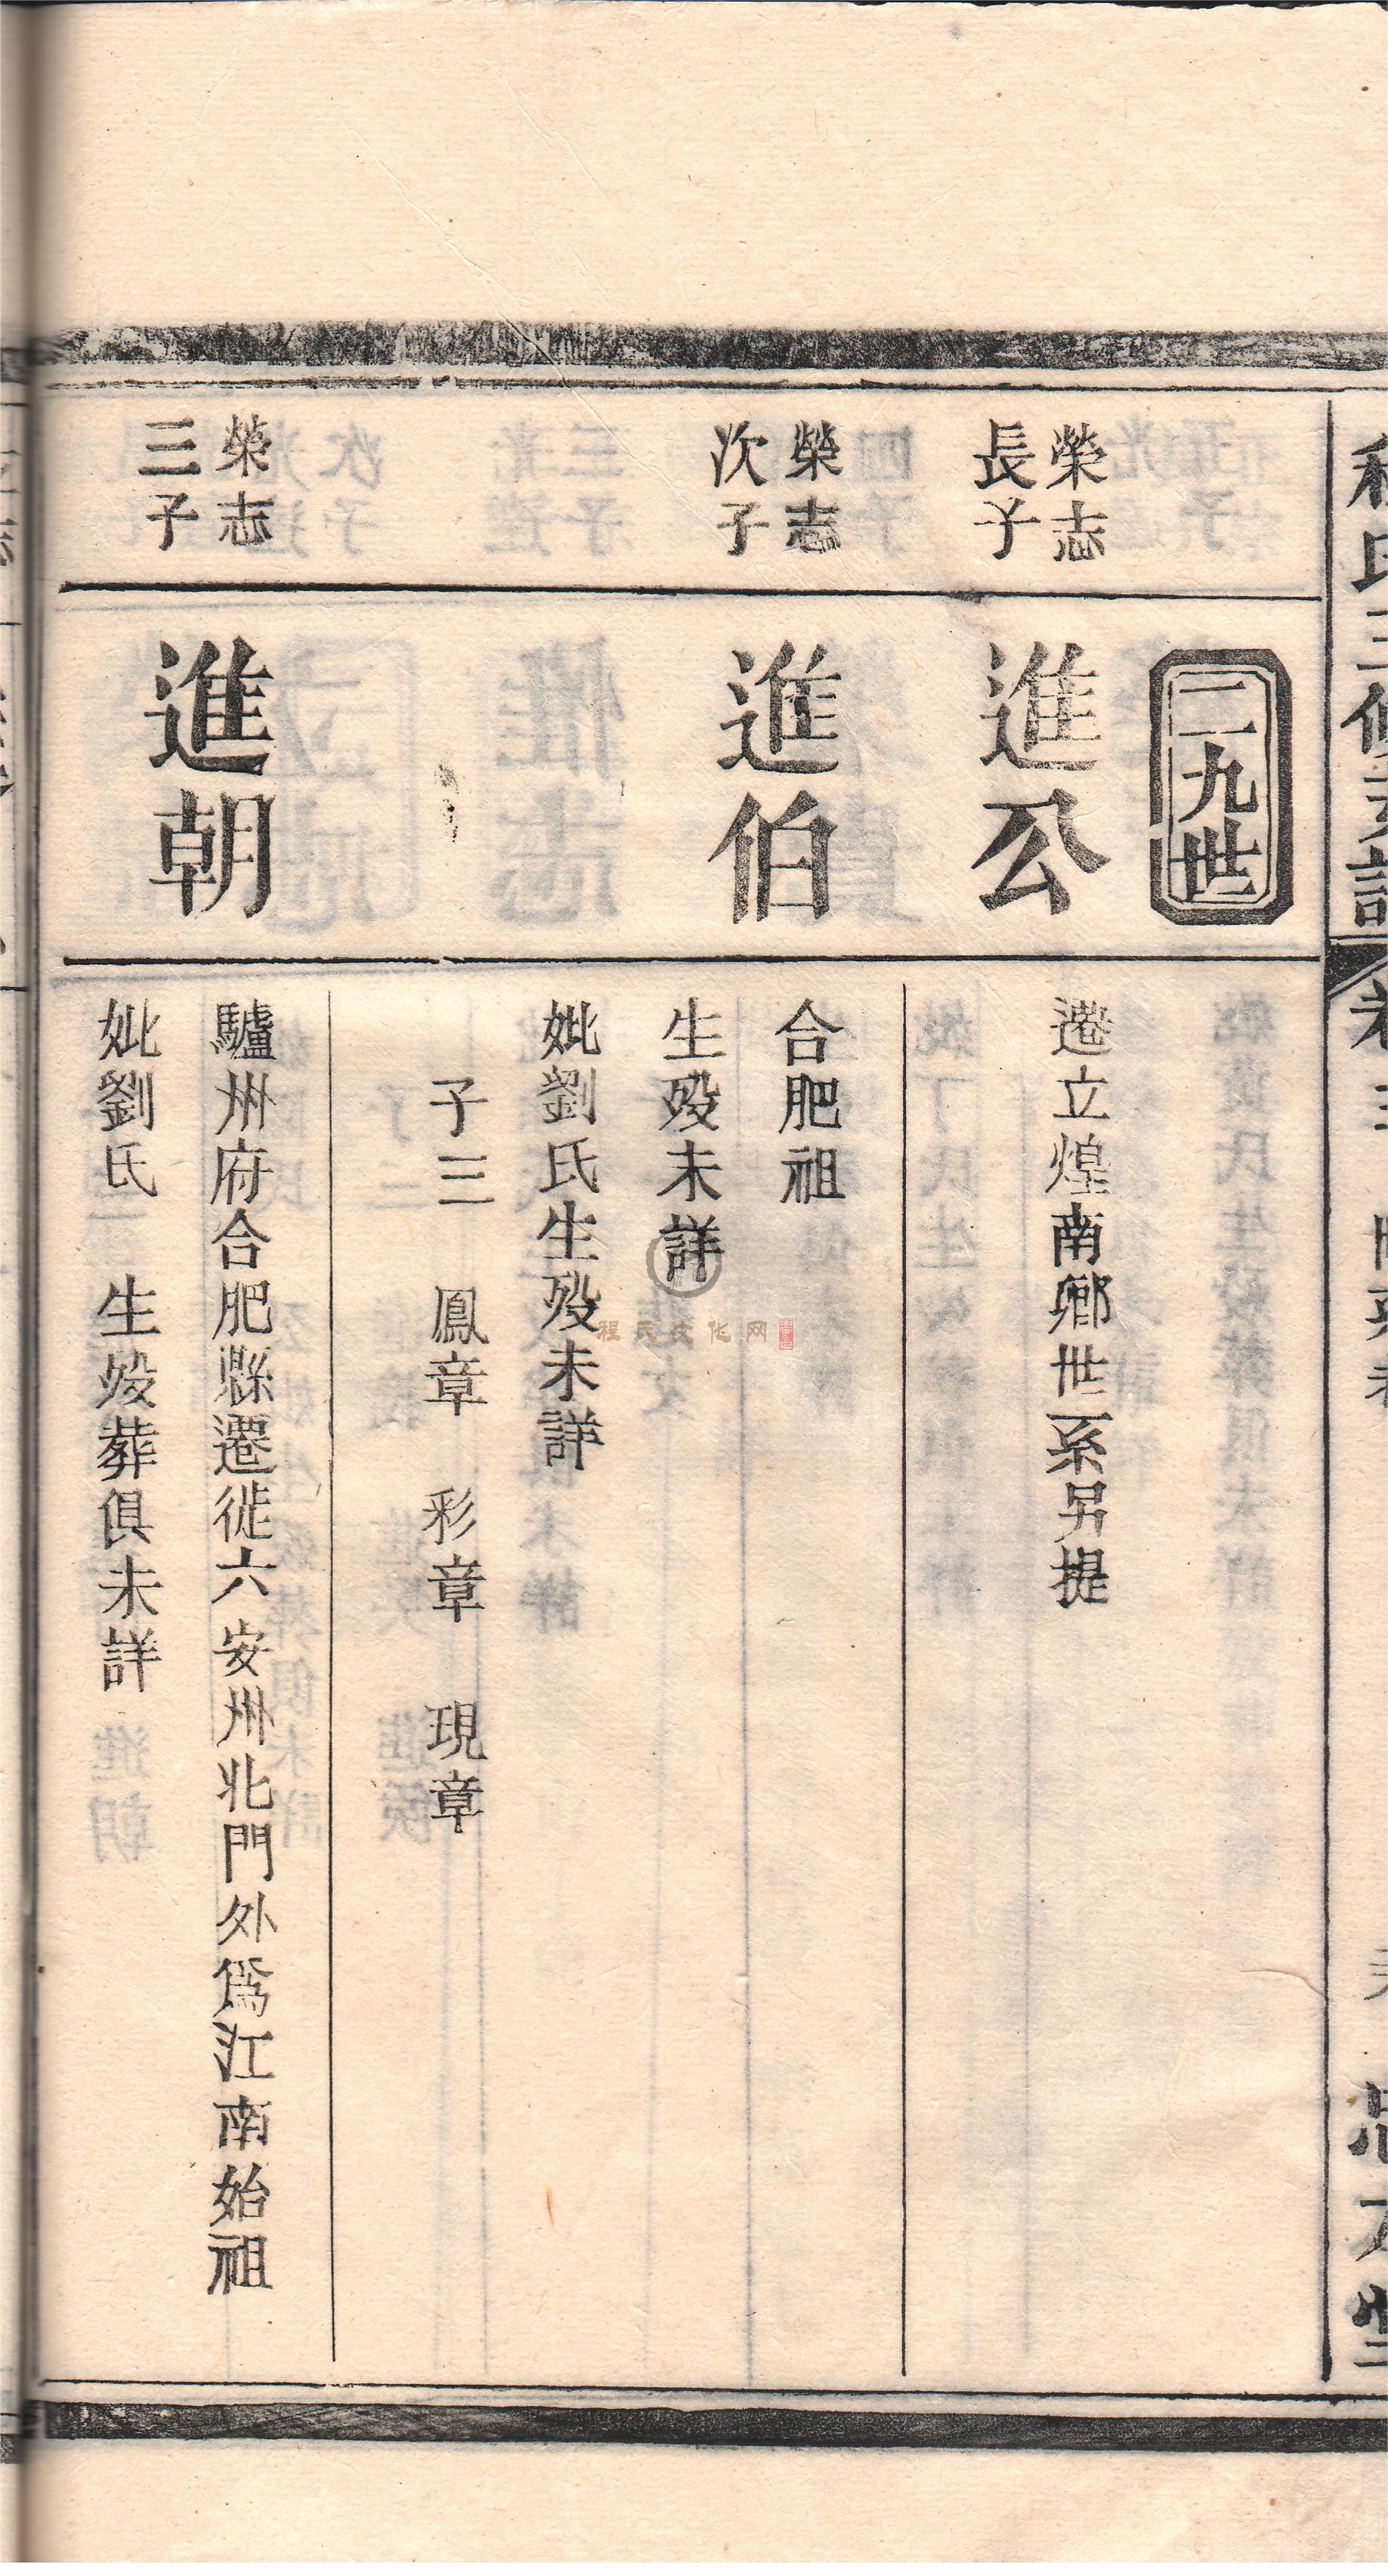 二九世
榮志
長子
進公
遷立煌南鄉世系另提
榮志
次子
進伯
合肥祖
生殁未詳
妣劉氏生殁未詳
子三 鳳章 彩章 現章
榮志
三子
進朝
驢州府合肥縣遷徙六安州北門外爲江南始祖
妣劉氏 生殁葬俱未詳
程氏文化网